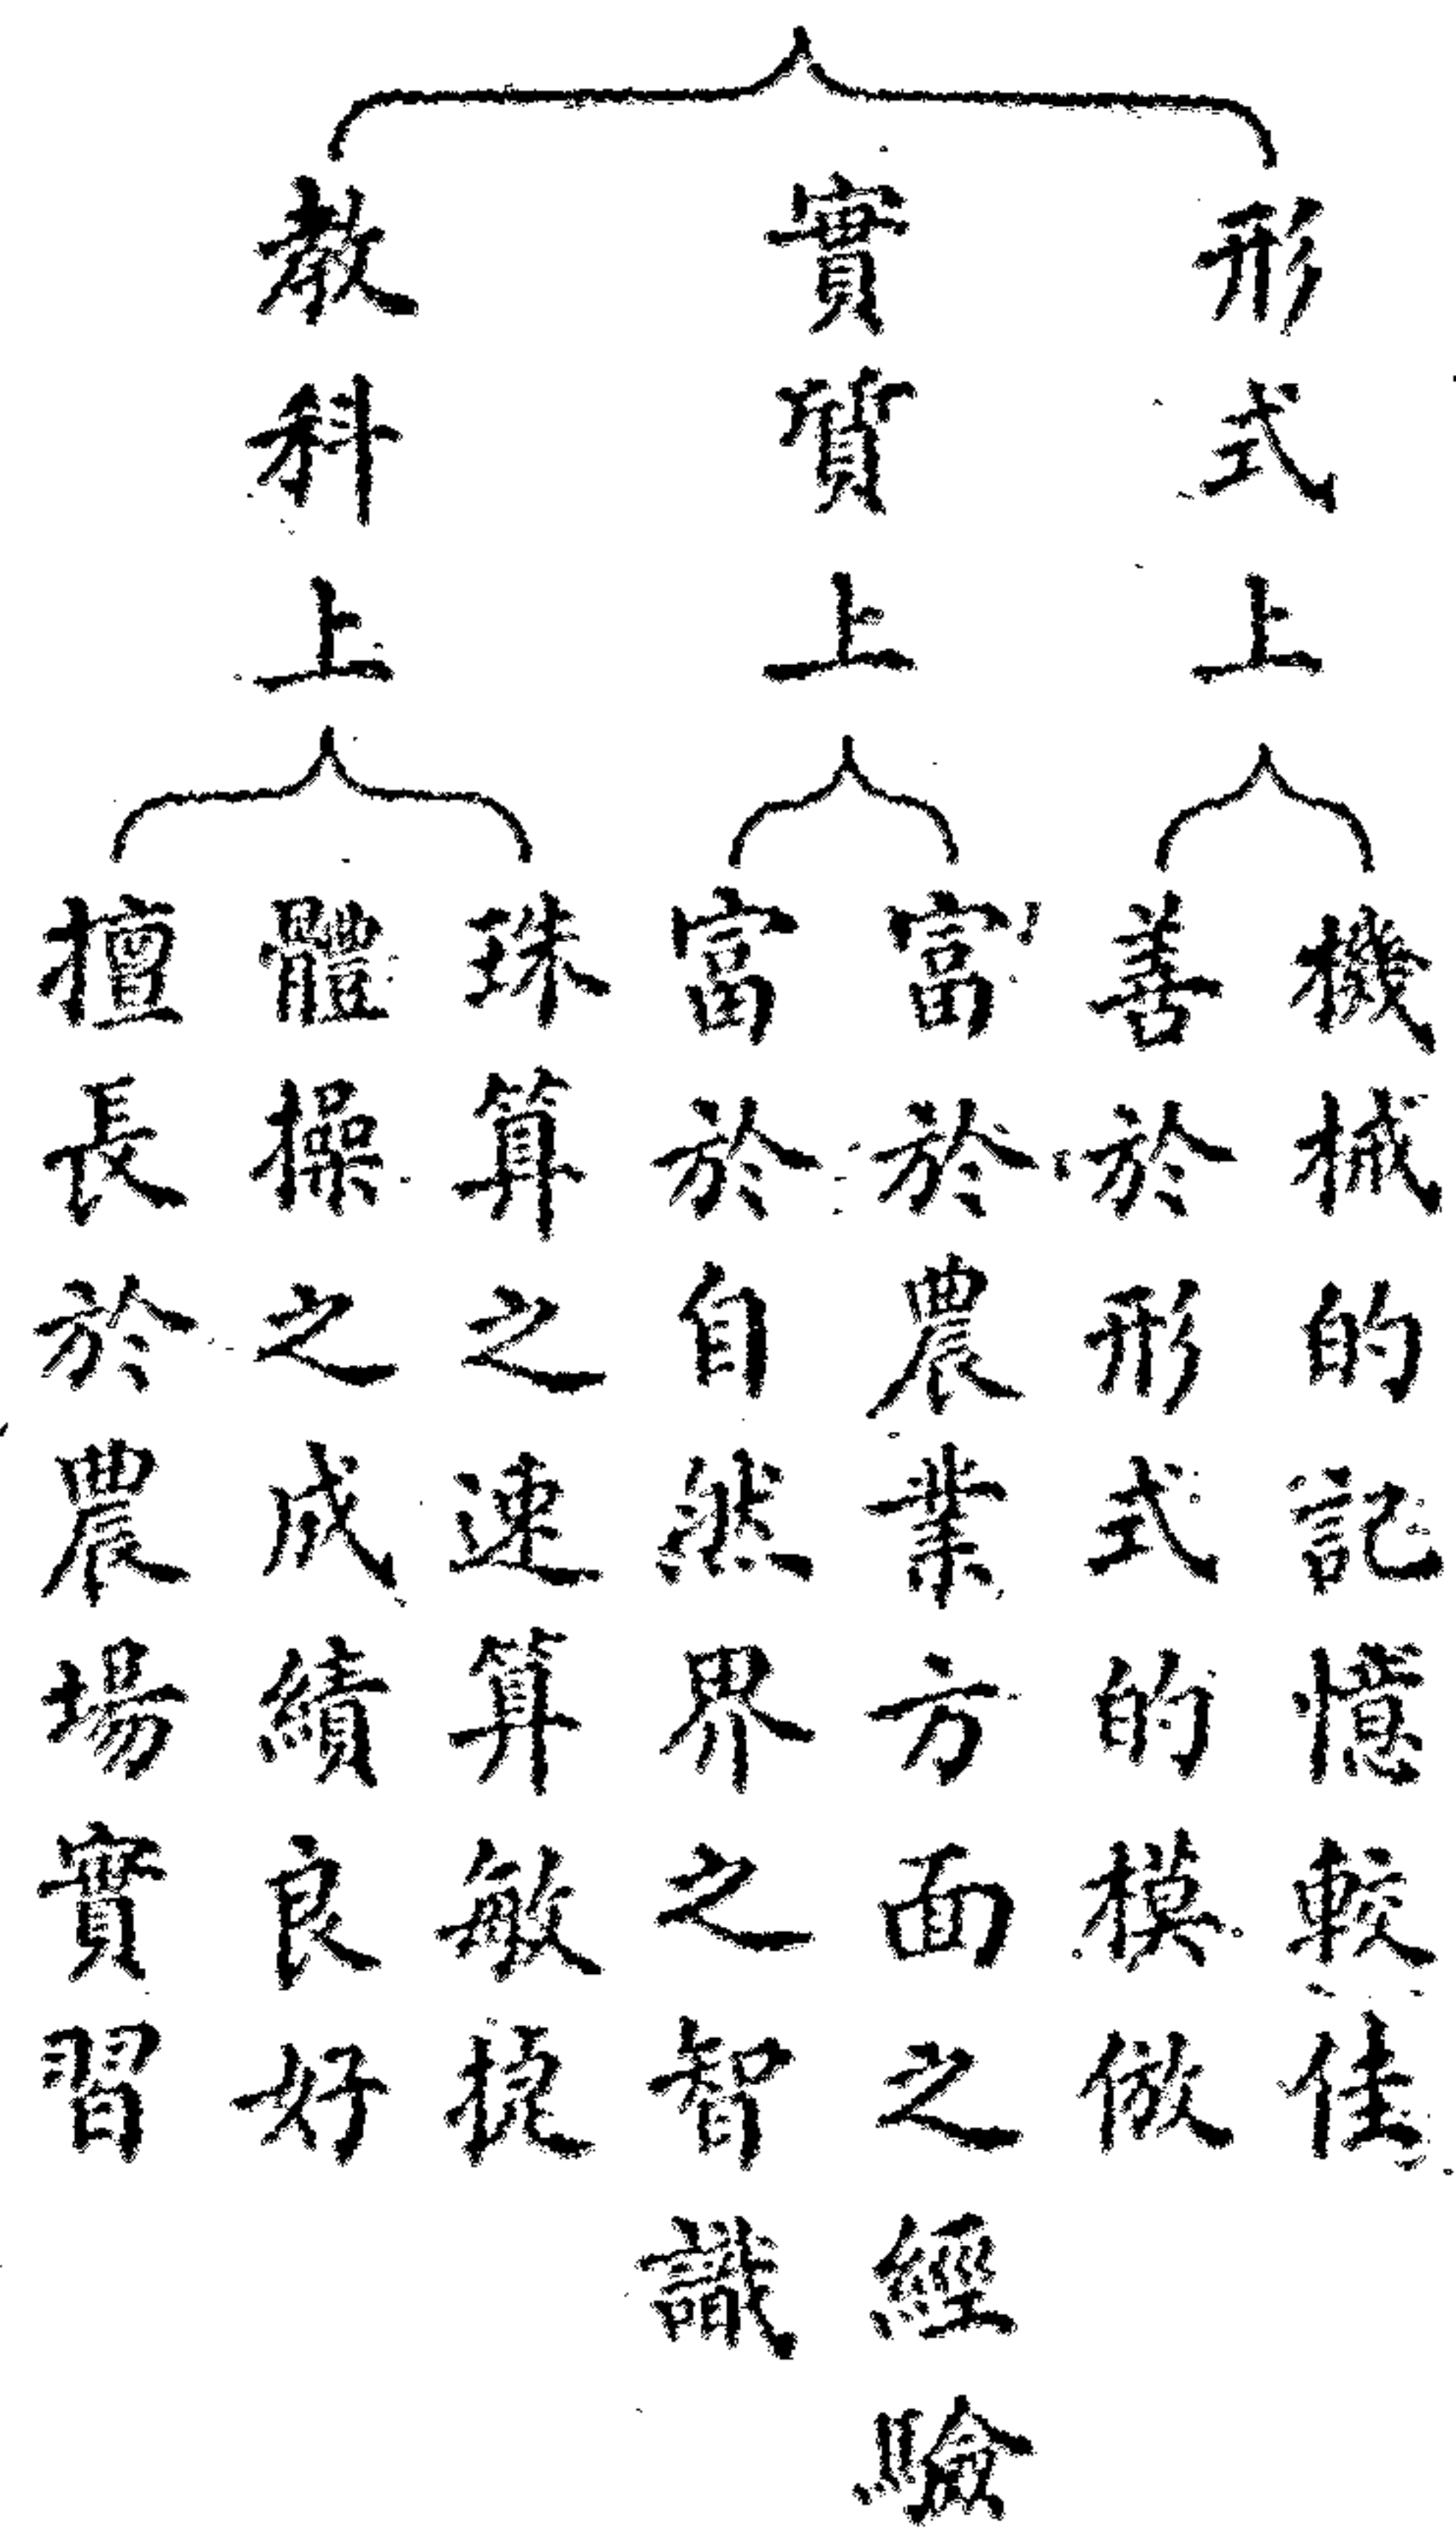 形式上
機械的記憶較佳
善於形式的模倣
實質上
富於農業方面之經驗
富於自然界之智識
教科上
珠算之速算敏捷
體操之成績良好
擅長於農場實習